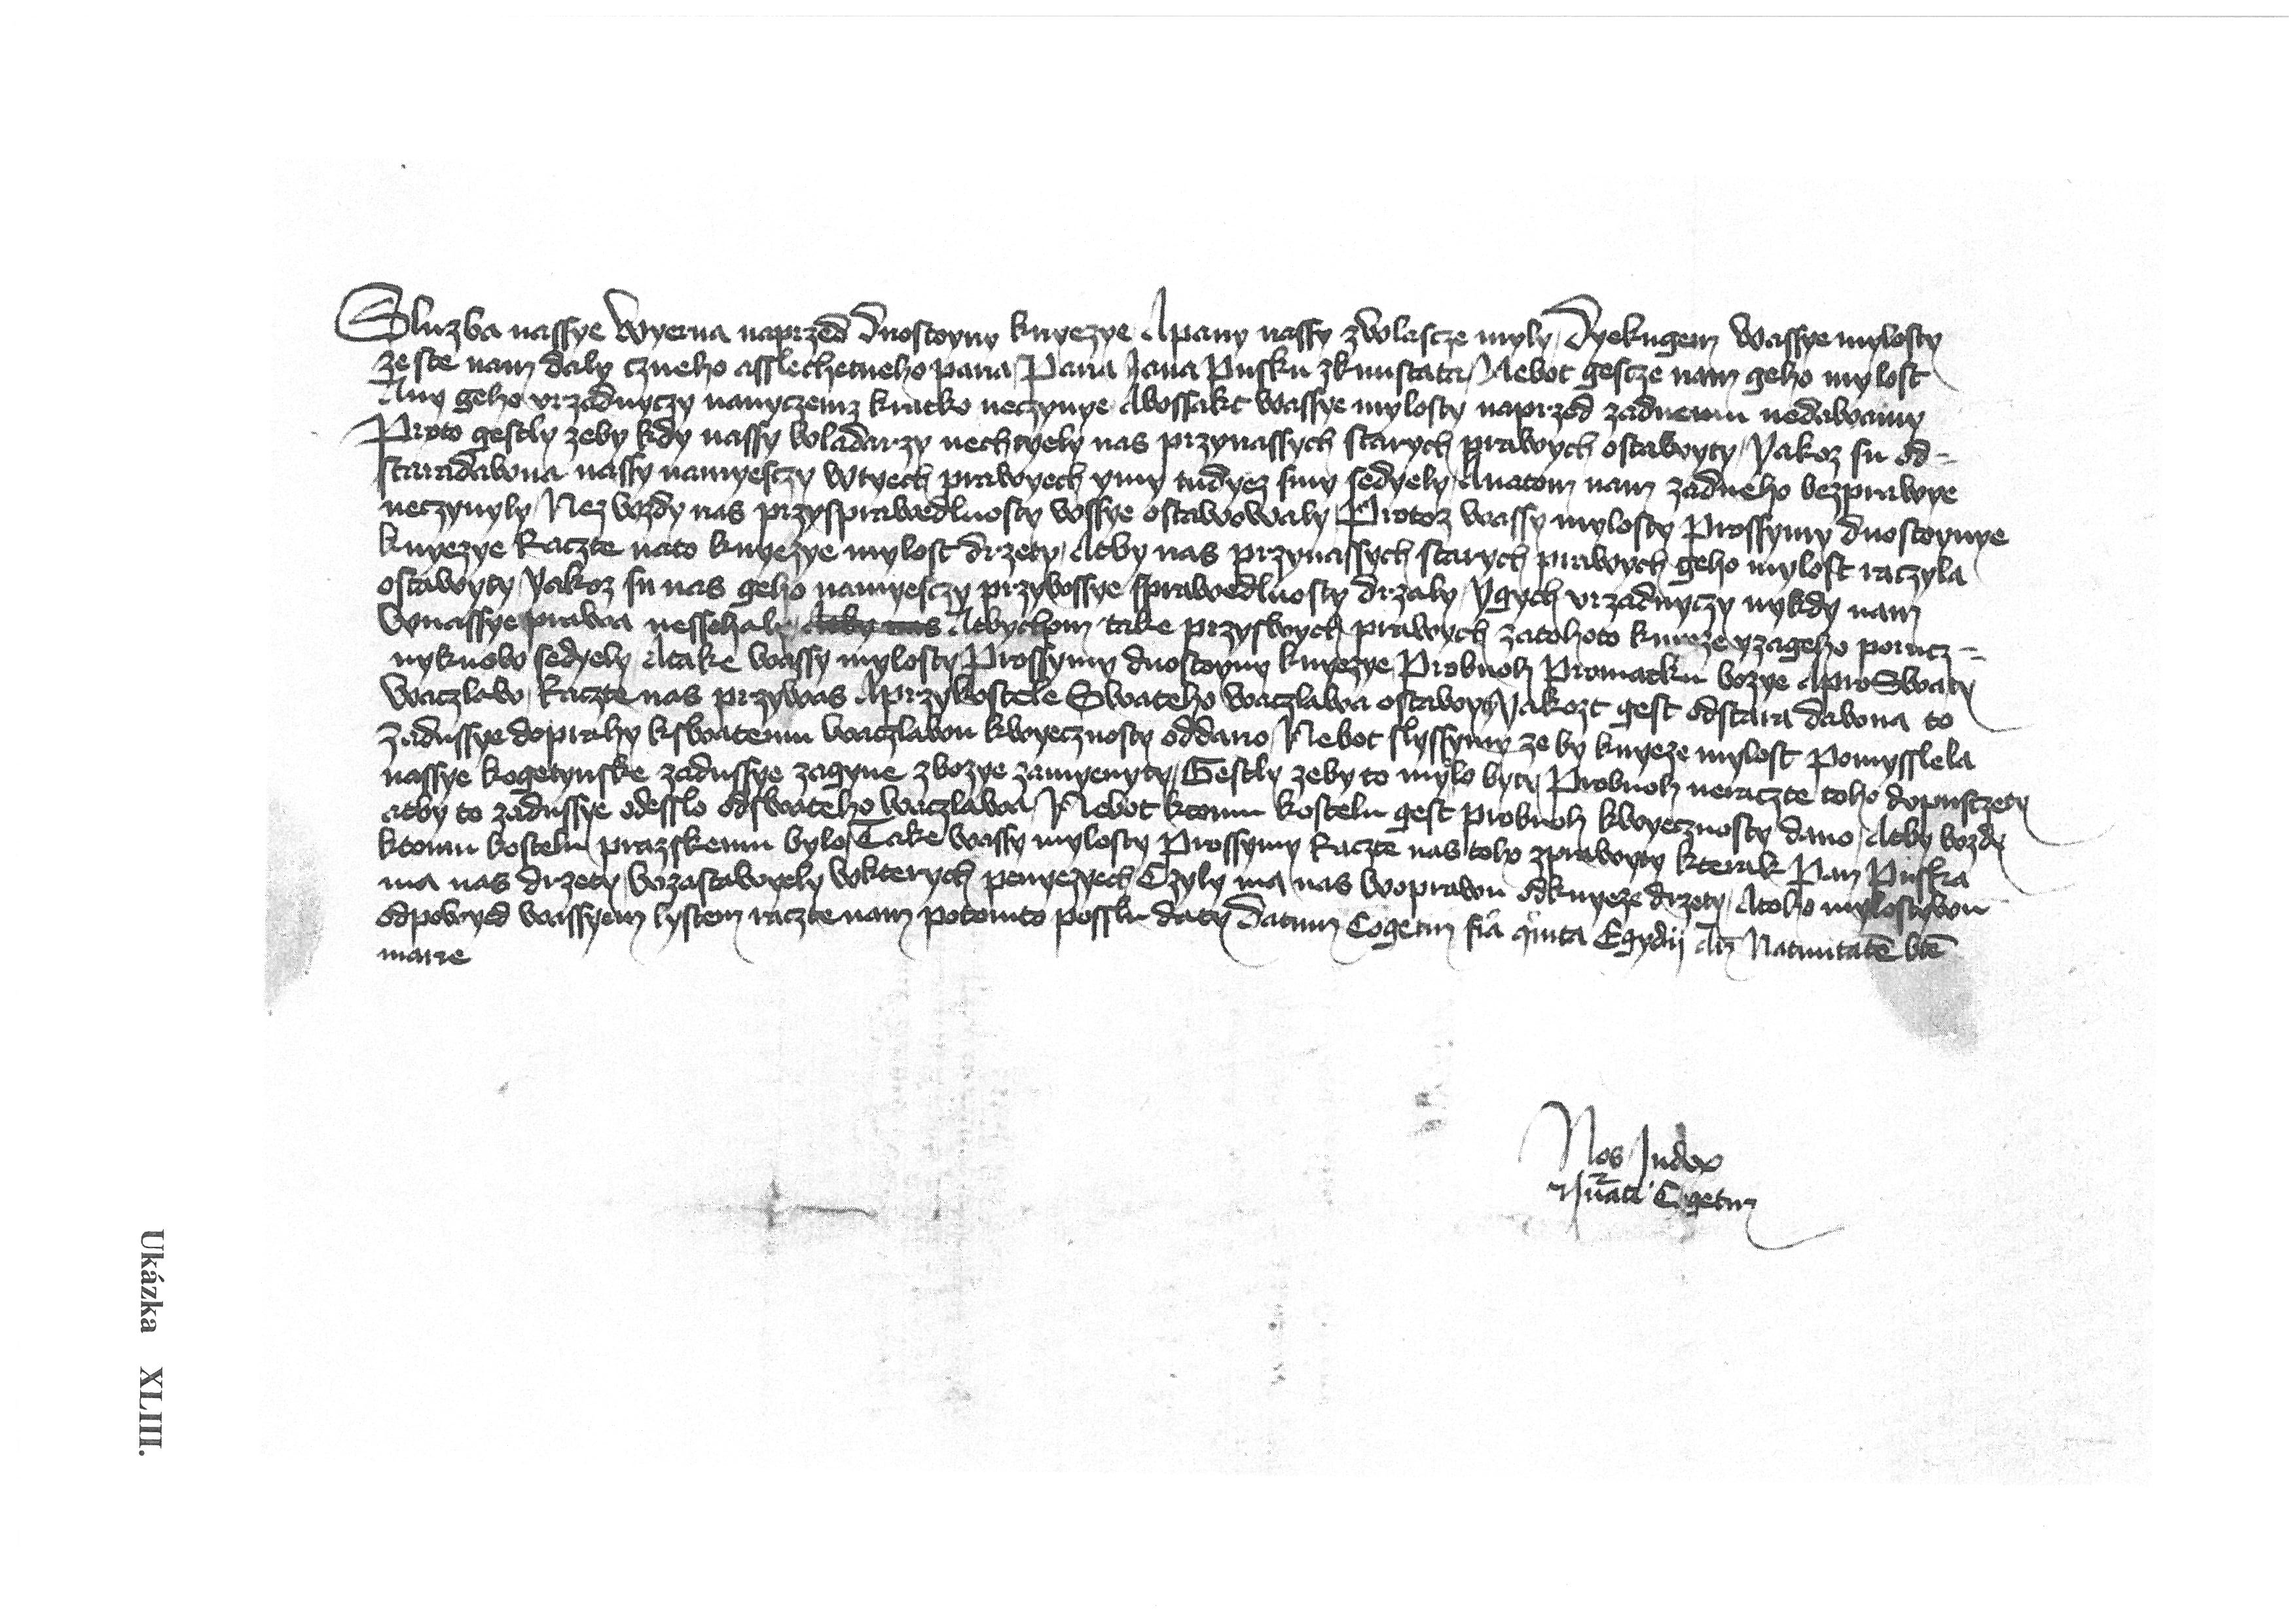 Sluzba nassye Wyerna naprzed duostoyny knyezye Apany nassy zwlascze myly Dyekugem wassye mylosty
ze ste nam daly czneho asslechetneho pana Pana Jana Pusku zkunstata Nebot gescze nam geho mylost
Any geho vrzadnyczy nanyczemz kratko neczynye Awssakt wassye mylosty naprzed zadnemu nedawamy
Proto gestly zeby kdy nassy wladarzy nechtyely nas przynassych starych prawych ostawyty Yakoz su od-
staradawna nassy namyesczy wtyech prawyech ymy tudyez smy sedyely Anatom nam zadneho bezprawye
neczynyly Nez wzdy nas przysprawedlnosty wssye ostawowaly Protoz wassy mylosty Prossymy duostoynye
knyezye Raczte nato knyezye mylost drzety Atby nas przynassych starych prawych geho mylost raczyla
ostawyty Yakoz su nas geho namyesczy przywssye sprawedlnosty drzaly Ygych vrzadnyczy nykdy nam
wnassye prawa nessehaly Atbychom take przyswych prawych zatohoto knyeze yzageho porucz-
nykuow sedyely Atake wassy mylosty Prossymy duostoyny knyezye Probuoh Promatku bozye AproSwaty
waczlaw Raczte nas przywas Aprzykostele Swateho waczlawa ostawyty Yakozt gest odstara dawna to
zadussye doprahy kswatemu waczlawu kwyecznosty oddano Nebot slyssymy ze by knyeze mylost Pomysslela
nassye kogetynske zadussye zagyne zbozye zamyenyty Gestly zeby to mylo byty Probuoh neraczte toho dopusczety
atby to zadussye odesslo odswateho waczlawa Nebot ktomu kostelu gest probuoh kwyecznosty dano Atby wzdy
ktomu kostelu prazskemu bylo Take wassy mylosty Prossymy Raczte nas toho zprawyty kterak Pan Puska
ma nas drzety wzastawyely wkterych penyezyech Czyly ma nas woprawu odknyeze drzety Atoho mylostywu
odpowyed wassyem lystem raczte nam potomto posslu daty Datum Cogetin fia quinta Egydij An Natiuitate bte
marie
Nos Judex
Jurati Cogetin
Ukázka XLIII.